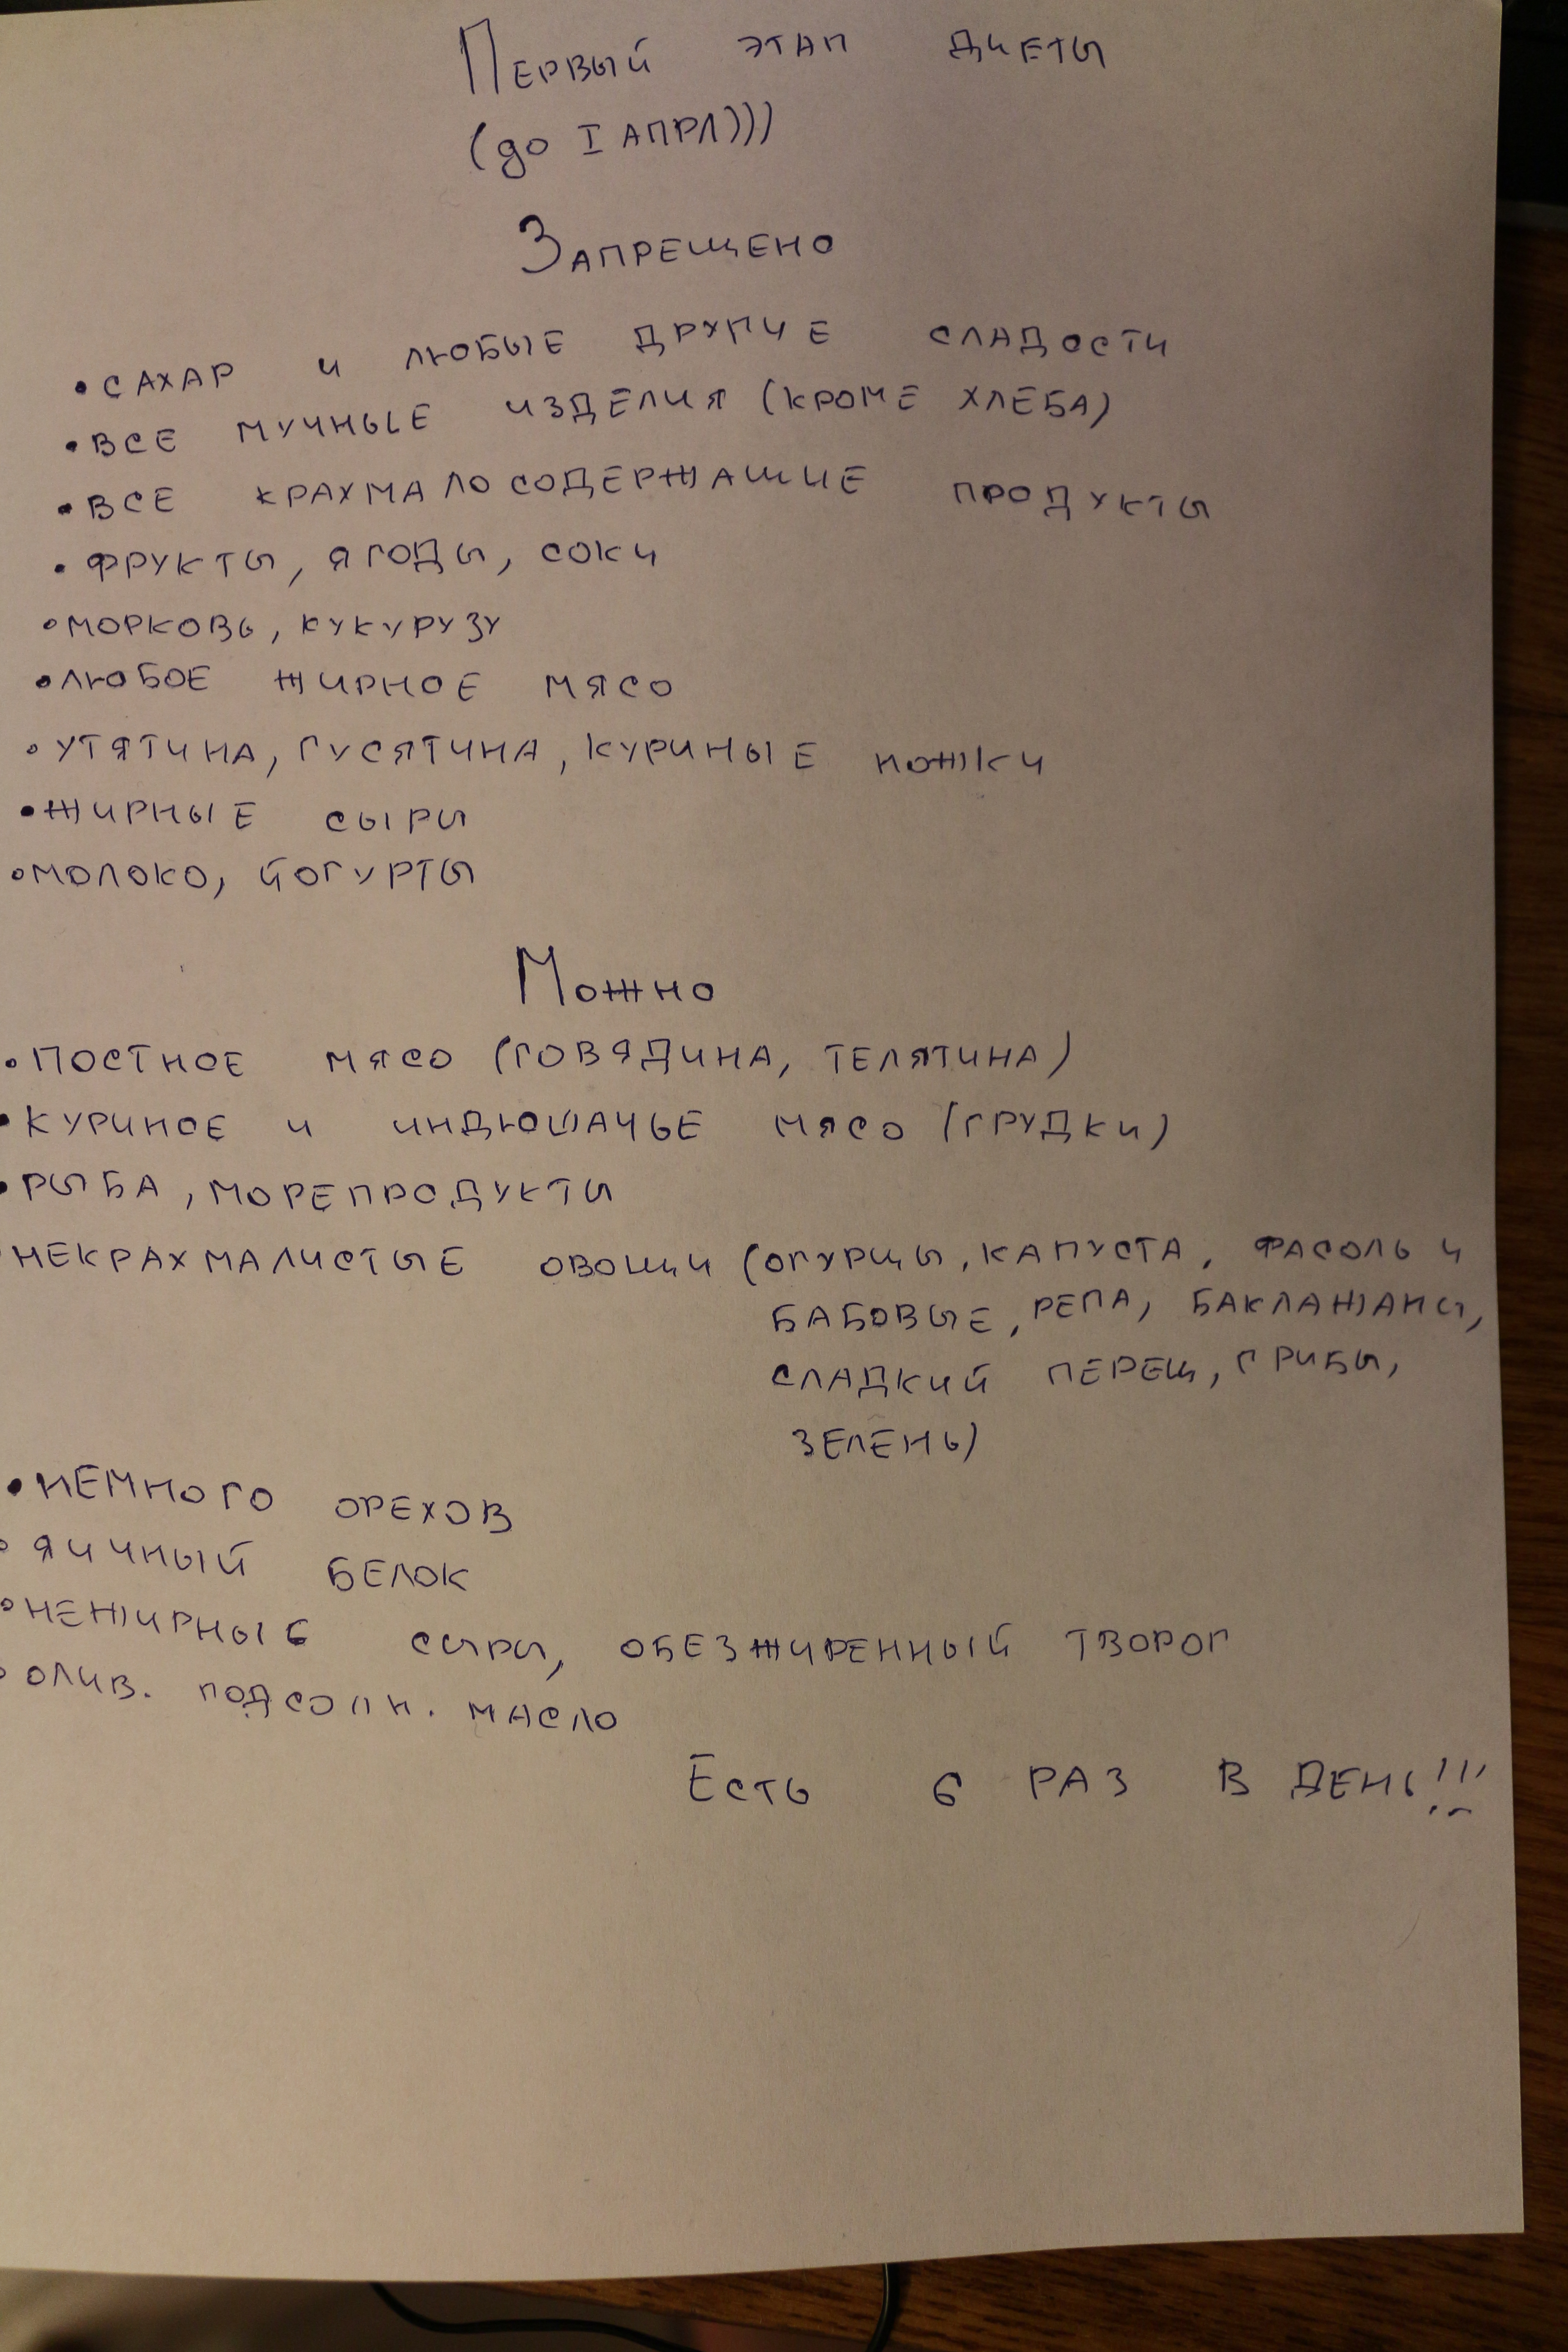 Первый этап диеты
(до I апрл)))
Запрещено
•сахар и любые другие сладости
•все мучные изделия (кроме хлеба)
•все крахмалосодержащие продукты
•фрукты, ягоды, соки
•морковь, кукурузу
•любое жирное мясо
•утятина, гусятина, куриные ножки
•жирные сыры
•молоко, йогурты
Можно
•постное мясо (говядина, телятина)
•куриное и индюшачье мясо (грудки)
•рыба, морепродукты
некрахмалистые овощи (огурцы, капуста, фасоль и
бабовые, репа, баклажаны,
сладкий перец, грибы,
зелень)
•немного орехов
•яичный белок
•нежирные сыры, обезжиренный творог
•олив. подсолн. масло
Есть 6 раз в день!!!